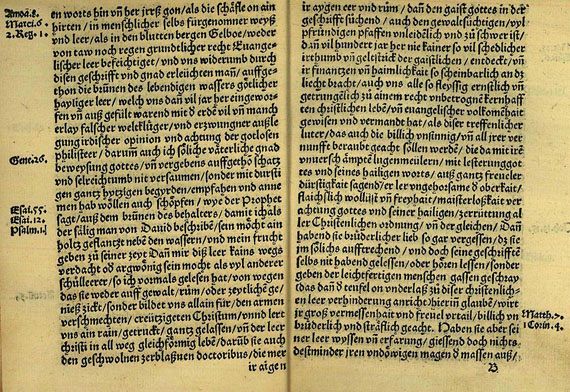 Amos. 8.
Matei. 6
2. Reg. 1.
Gene: 26.
Esai. 55.
Esai. 12.
Psalm. i
en worts hin vñ her jrrß gon/als die schåfle on ain
hirten/in menschlicher selbs fürgenomner weyß
vnd leer/als in den blutten bergen Gelboe/weder
von taw noch regen grundtlicher recht Euange-
lischer leer befeichtiget/vnd vns widerumb durch
disen geschrifft vnd gnad erleüchten mañ/auffge-
thon die brünen des lebendigen wassers götlicher
hayliger leer/welch vns dañ vil jar her eingeworf-
fen vñ auß gefült warend mit d erdē vil vñ mauch
erlay falscher weltkluger/vnd erzwungner außle
gung irdischer opinion vnd achtung der gotlosen
philisteer/darum̃ auch ich soliche våterliche gnad
beweysung gottes/vñ vergebens auffgehõ schatz
vnd selreichtumb nit versaumen/sonder mit dursti
gen gantz hytzigen begyrden/empfahen vnd anne
men hab wöllen auch schöpfen/wye der Prophet
sagt/auß dem brünen des behalters/damit ich als
der sålig man von Dauid beschribē/sein möcht ain
holtz geflantzt nebē den wassern/vnd mein frucht
geben zu seiner zeyt Dañ mir diß leer kains wegs
verdacht od argwönig sein mocht als vyl anderer
schülleerer/so ich vormals gelesen hat/von wegen
das sie weder auff gewalt/rům/oder zeyrliche ge-
nieß zickt/sonder bildet vns allain für/den armen
verschmechten/creützigeten Christum/vnnd lert
vns ain rain/getruckt/gantz gelassen/vñ der leer
christi in all weg gleichförmig leben/darüb sie auch
den geschwolnen zerblaßnen doctoribus/die mer
ir aigen
ir aygen eer vnd rům/dañ den gaist gottes in der
geschrifft süchend/auch den gewaltsüchtigen/vyl
pfründigen pfaffen vnleidēlich vnd zu schwer ist/
dañ vil hundert jar her nie kainer so vil schedlicher
irthumb vñ geletzstrick der gaistlichen/entdeckt/vñ
ir finantzen vñ haimlichkait so scheinbarlich an dz
liecht bracht/auch vns alle so fleyssig ernstlich vñ
getrungēlich zu ainem recht vnbetrognē kernhaff
ten christlichen lebē/vñ euangelischer volkomēhait
gewisen vnd vermandt hat/als diser treffenlicher
luter/das auch die billich vnsinnig/vñ all jrer ver
nunfft beraubt geacht söllen werdē/die da mit vil
vnuerschåmptē lugenmeülern/mit lesterung got
tes vnd seines hailigen worts/auß gantz freueler
dürstigkait sagend/er ler vngehorsame d oberkait/
flaischlich wollust vñ freyhait/maisterloßkait ver
achtung gottes vnd seiner hailigen/zerrittung al
ler Christenlichen ordnung/vñ der gleichen/Dañ
habend die brüderlichen lieb so gar vergessen/dz sie
jm sölichs auffrechend/vnd doch seine geschrifftē
selbs nit habend gelesen/oder hören lessen/sonder
geben der leichtfertigen menschen gassen geschray
das dañ d teufel on vnderlaß zu diser christenlich-
en leer verhinderung anricht/hierin̄ glaubē/wirt
jr groß vermessenhait vnd freuel vrtail/billich vn
brüderlich vnd sträflich geacht. Haben sie aber sei
ner leer wyssen vñ erfarung/giessend doch nichts-
destminder jren vndöwigen magen d massen auß/
B
Matth. 7.
i Corin. 4.